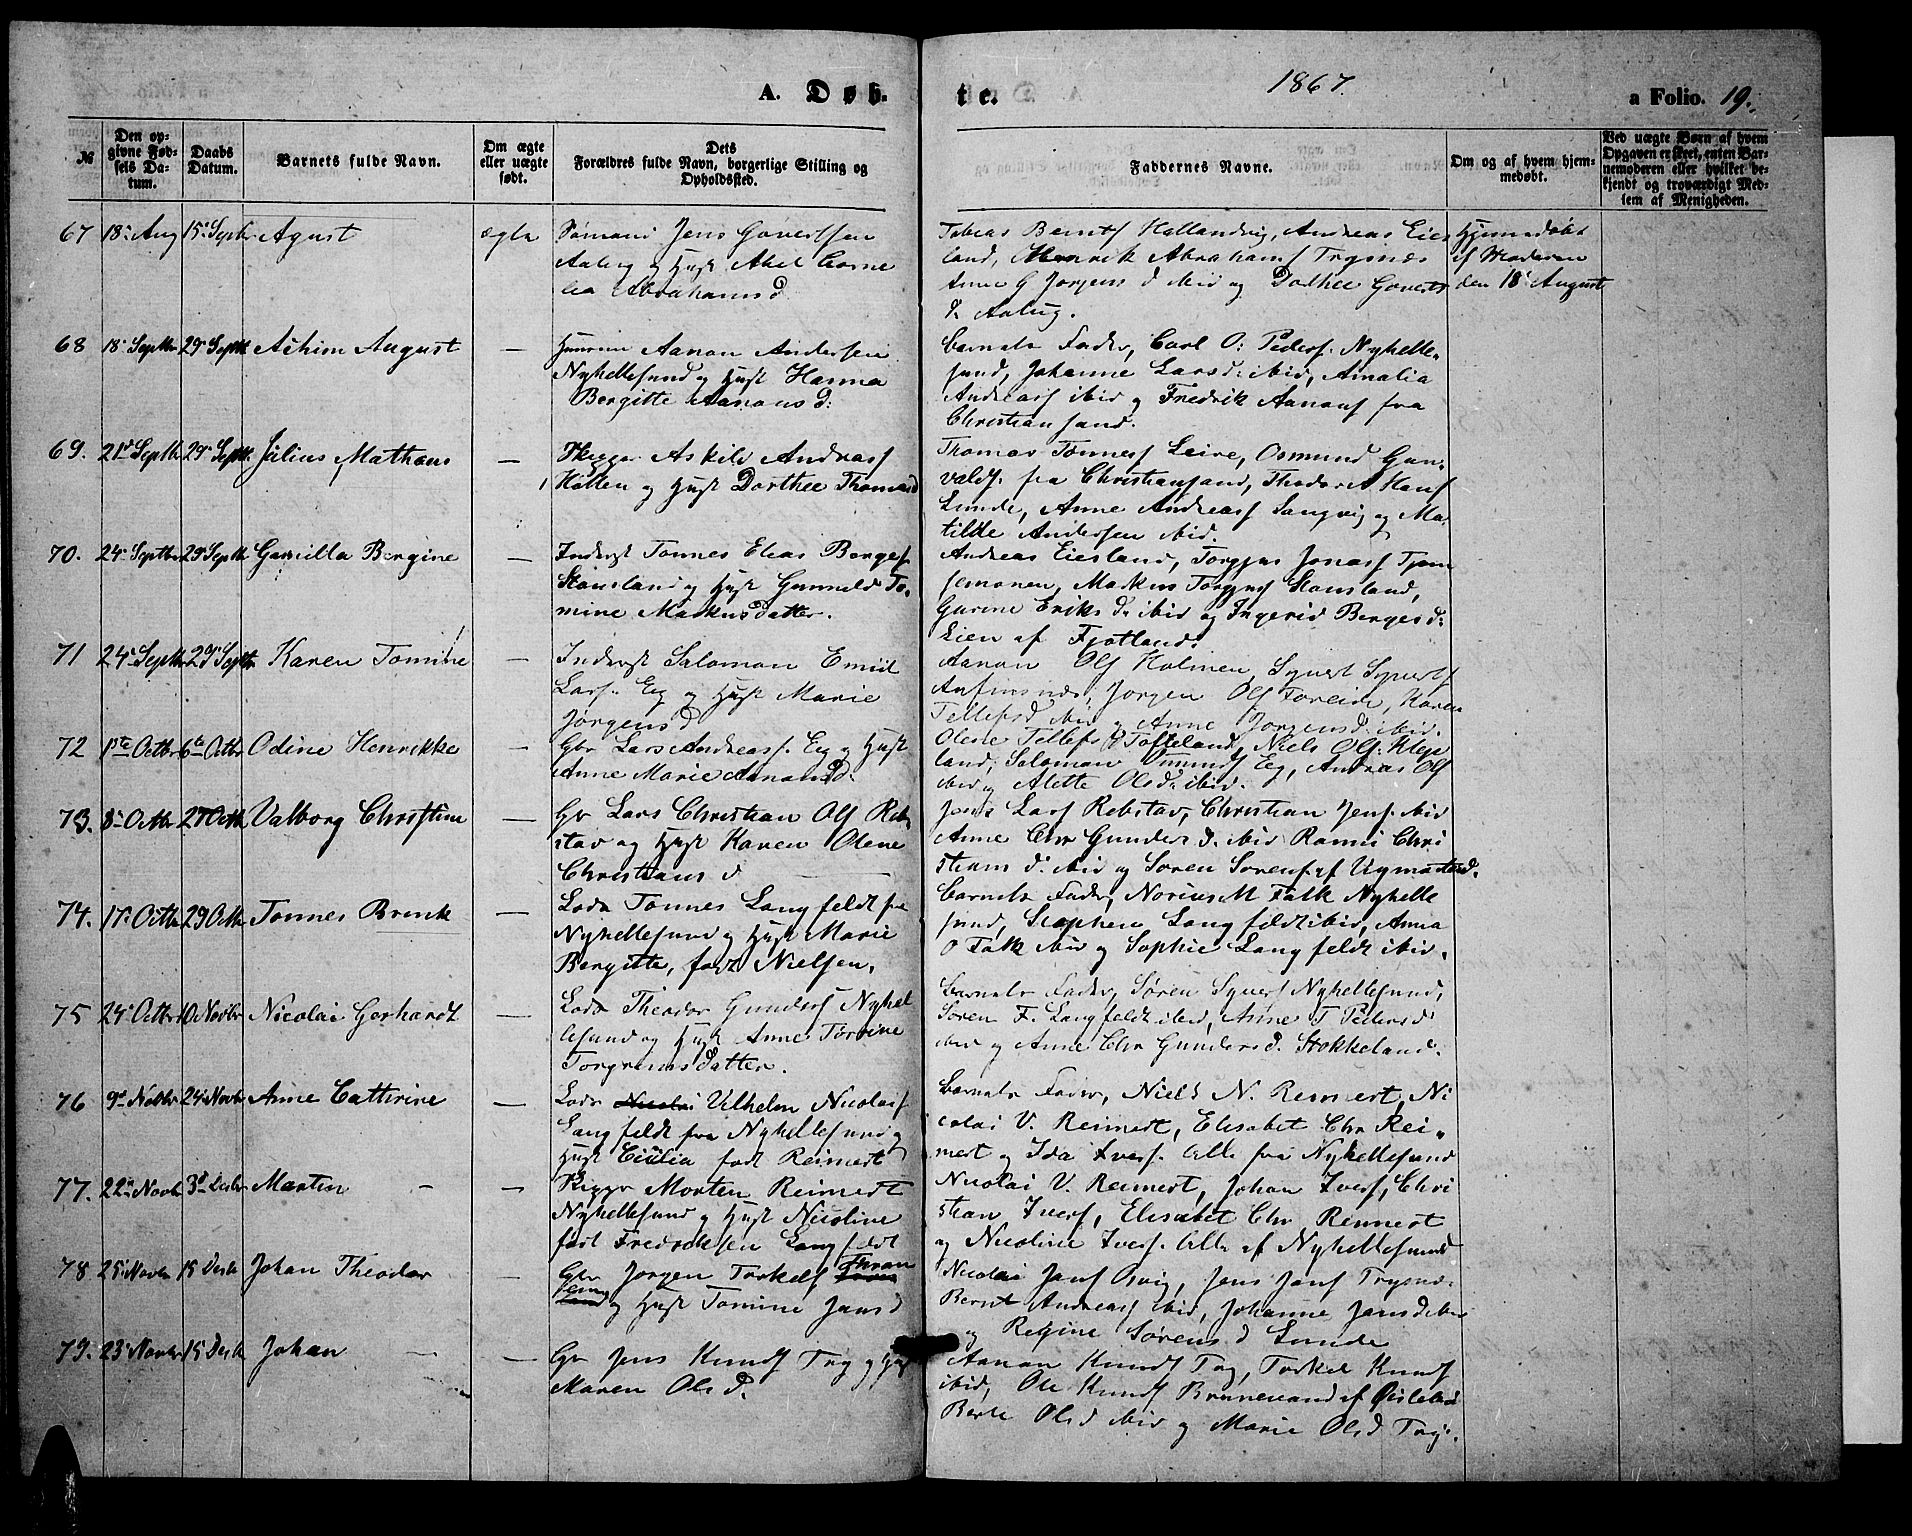 1867.
A. Døb-
te.
a Folio. 19.
№
Den op-
givne Fød-
sels Da-
tum.
Daabs
Datum.
Barnets fulde Navn.
Om ægte
eller uægte
født.
Dets
Forældres fulde Navn, borgerlige Stilling og
Opholdssted.
Faddernes Navne.
Om og af hvem hjem-
medøbt.
Ved uægte Børn af hvem
Opgaven er skeet, enten Bar-
nemoderen eller hvilket be-
kjendt og troværdigt Med-
lem af Menigheden.
67 18 Aug 15 Septbr Agust ægte
Sømand Jens Govertsen
Aabug og Hust Abel Corne
lia Abrahamsd
Tobias Bernts Hallandvig, Andreas Eies
land, Henrik Abrahams Trysnes
Anne G Jørgens d ibid og Dorthee Goverts
d. Aabug.
Hjemmedøbt
af Moderen
den 18 August
68 18 Septbr 29 Septbr Achim August —
Aanon Andersen
Nyhellesund og Hust Hanna
Bergitte Aanons d:
Barnets Fader, Carl O: Peders. Nyhelle-
sund, Johanne Lars d: ibid, Amalia
Andreas ibid og Fredrik Aanons fra
Christiansand.
69. 21d Septbr 29 Septbr Julius Mathæus —
Askild Andreas
Holten og Hust Dorthee Thomasd
Thomas Tønnes Leire, Osmund Gun-
valds. fra Christiansand, Theodor Hans
Lunde, Anne Andreas Langvig og Ma-
tilde Andersen ibid.
70. 24 Septbr 29 Septbr Gamilla Bergine —
Inderst Tønnes Elias Berges
Stausland og Hust Gunvald To-
mine Markusdatter.
Andreas Eiesland, Torgjus Jonas Tjom
semonen, Markus Torgjus Stausland,
Gurine Eriks d: ibid og Ingerid Berges d:
Eien af Fjotland.
71 24 Septbr 29 Septbr Karen Tomine —
Inderst Salomon Emiil
Lars. Eeg og Hust Marie
Jørgensd
Aanon Ols Holmen, Syvert Syverts
Anfinsnes, Jørgen Ols Toreim, Karen
Tellefsd ibid og Anne Jørgensd: ibid.
72 1ste Octbr 6te Octbr Odine Henrikke —
Gbr Lars Andreas. Eeg og Hust
Anne Marie Aanonsd:
Olene Tellefs d Tofteland, Niels Ols. Klep
land, Salomon Omunds Eeg, Andreas Ols
ibid og Alette Olsd: ibid.
73. 8 Octbr 27 Octbr Valborg Christine —
Gbr Lars Christian Ols Reb
stad og Hust Karen Olene
Christians d
Jens Lars Rebstad, Christian Jens. ibid
Anne Chr Gunders d. ibid Christi
ans d. ibid og Søren Sørens. af
74. 17 Octbr 29 Octbr Tønnes Brink —
Lods Tønnes Langfeldt fra
Nyhellesund og Hust Marie
Bergitte, født Nielsen.
Barnets Fader, Norius M Falk Nyhelle
sund, Stephen Langfeldt ibid, Anna
O Falk ibid og Sophie Langfeldt ibid.
75 24 Octbr 10 Novbr Nicolai Gerhardt —
Lods Theodor Gunders Nyhel
lesund og Hust Anne Torine
Torgrimsdatter.
Barnets Fader, Søren Syvers Nyhellesund,
Søren F. Langfeldt ibid, Anne T Pedersd
ibid og Anne Chr Gunders d. Stokkeland.
76 9d Novbr 24 Novbr Anne Cathrine —
Lods Nicolai Vilhelm Nicolais
Langfeldt fra Nyhellesund og
Hust Cicilia født Reimert
Barnets Fader, Niels N. Reimert, Ni
colai V. Reimert, Elisabet Chr Rei-
mert og Ida Ivers. Alle fra Nyhellesund
77. 22 Novbr 3d Decbr Martin —
Rigger Morten Reimert
Nyhellesund og Hust Nicoline
født Fredriksen Langfeldt
Nicolai V. Reimert, Johan Ivers, Chri
stian Ivers, Elisabet Chr. Reimert
og Nicoline Ivers. Alle af Nyhellesund
78 25 Novbr 15 Decbr Johan Theodor —
Gbr Jørgen Torkels
og Hust Tomine Jans d
Nicolai Jans Øvig, Jens Jans Trysnes
Bernt Andreas ibid, Johanne Jansd ibid
og Regine Sørens d Lunde
79. 23 Novbr 15 Decbr Johan —
Gbr Jens Knuds Try og Hust
Maren Ols d.
Aanon Knuds Try, Torkel Knuds
ibid, Ole Knuds Brunevand af Øislebø
Berte Olsd ibid og Marie Olsd Try.